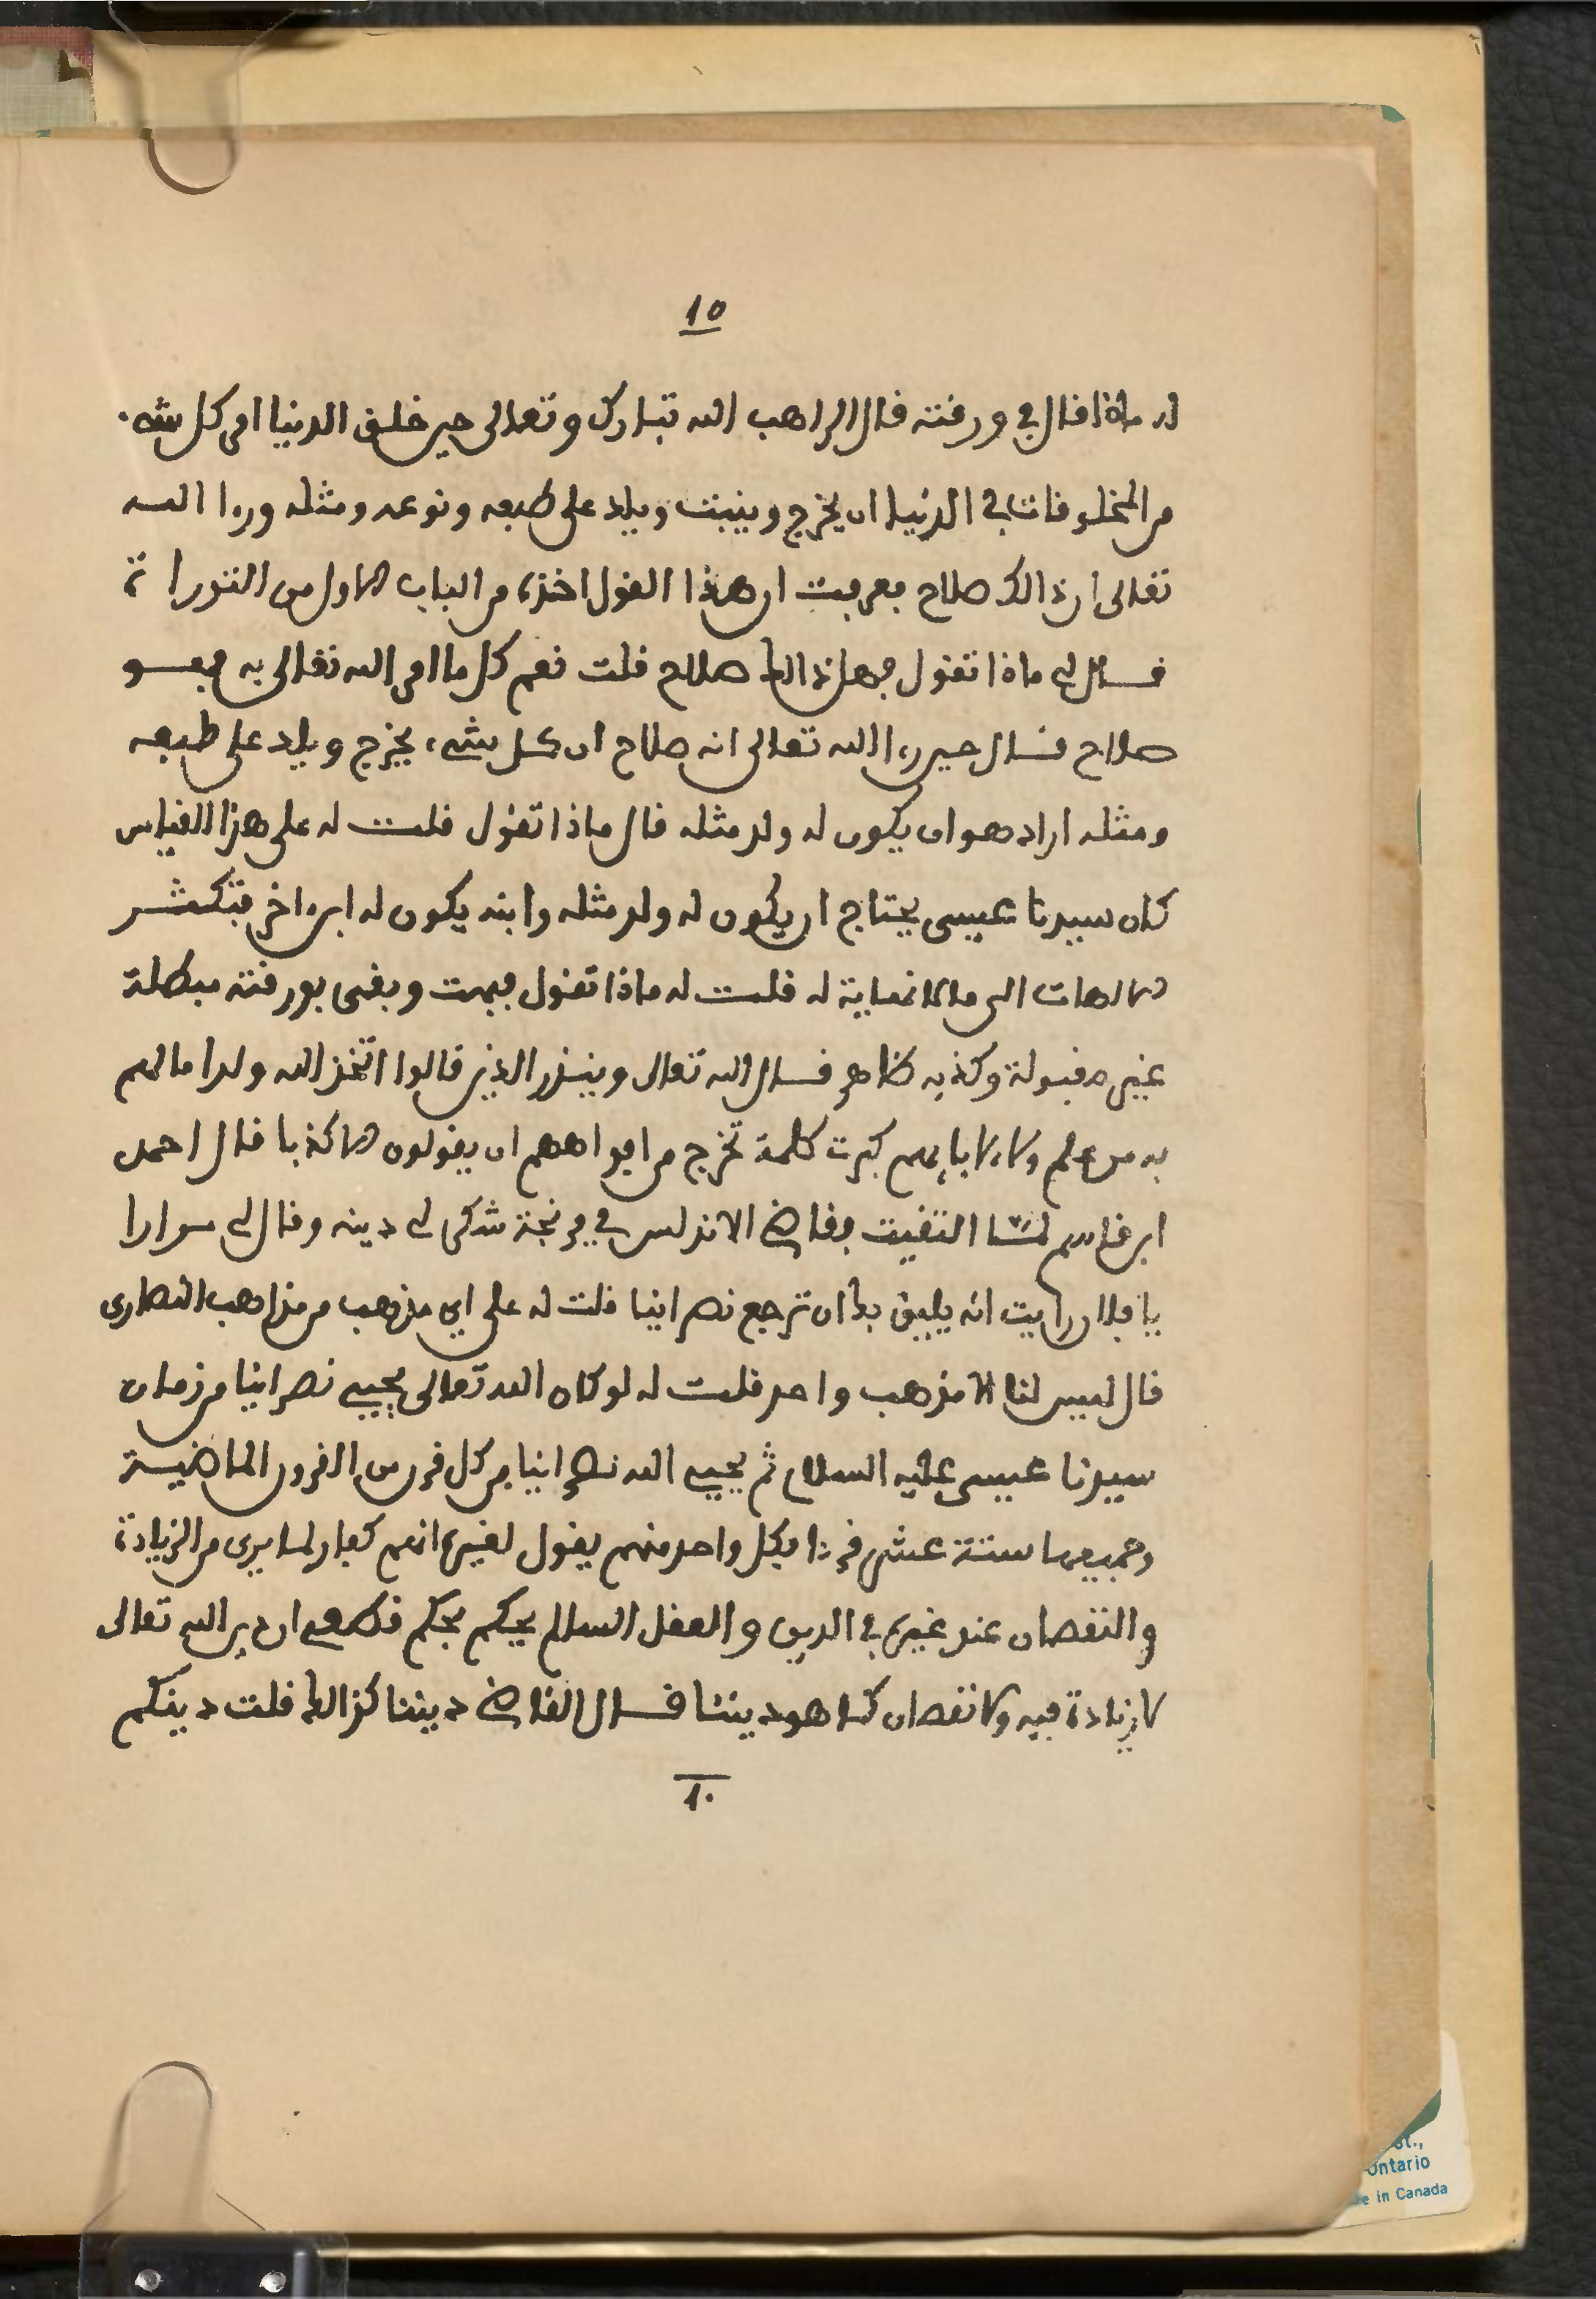 ١٥
له ماذا قال في ورقته قال الراهب الله تبارك وتعالى حين خلق الدنيا امر كل شيء
من المخلوقات في الدنيا ان يخرج وينبت ويلد على طبعه ونوعه ومثله ورءا الله
تعالى ان ذالك صلاح فعرفت ان هذا القول اخذه من الباب الاول من التوراة
فقال لي ماذا تقول فهل ذالك صلاح قلت نعم كل ما امر الله تعالى به فهو
صلاح فقال حين رءا الله تعالى انه صلاح ان كل شيء يخرج ويلد على طبعه
ومثله اراد هو ان يكون له ولد مثله قال ماذا تقول قلت له على هذا القياس
كان سيدنا عيسى يحتاج ان يكون له ولد مثله وابنه يكون له ابن اخر فتكثر
الالهات الى ما لا نهاية له قلت له ماذا تقول فبهت وبقى بورقته مبطلة
غير مقبولة وكذبه ظاهر قال الله تعالى وينذر الذين قالوا اتخذ الله ولدا ما لهم
به من علم ولا لابايهم كبرت كلمة تخرج من افواههم ان يقولون الا كذبا قال احمد
ابن قاسم لما التقيت بقاضي الاندلس في فرنجة شكر لي دينه وقال لي مرارا
يا فلان رايت انه يليق بك ان ترجع نصرانيا قلت له على اي مذهب من مذاهب النصارى
قال ليس لنا الا مذهب واحد قلت له لو كان الله تعالى يحيي نصرانيا من زمان
سيدنا عيسى عليه السلام ثم يحيي الله نصرانيا من كل قرن من القرون الماضية
وجميعها ستة عشر قرنا فكل واحد منهم يقول لغيره انهم كفار لما يرى من الزيادة
والنقصان عند غيره في الدين والعقل السالم يحكم بحكم قطعي ان دين الله تعالى
لا زيادة فيه ولا نقصان كما هو ديننا قال القاضي ديننا كذالك قلت دينكم
١٠
st.,
Ontario
de in Canada